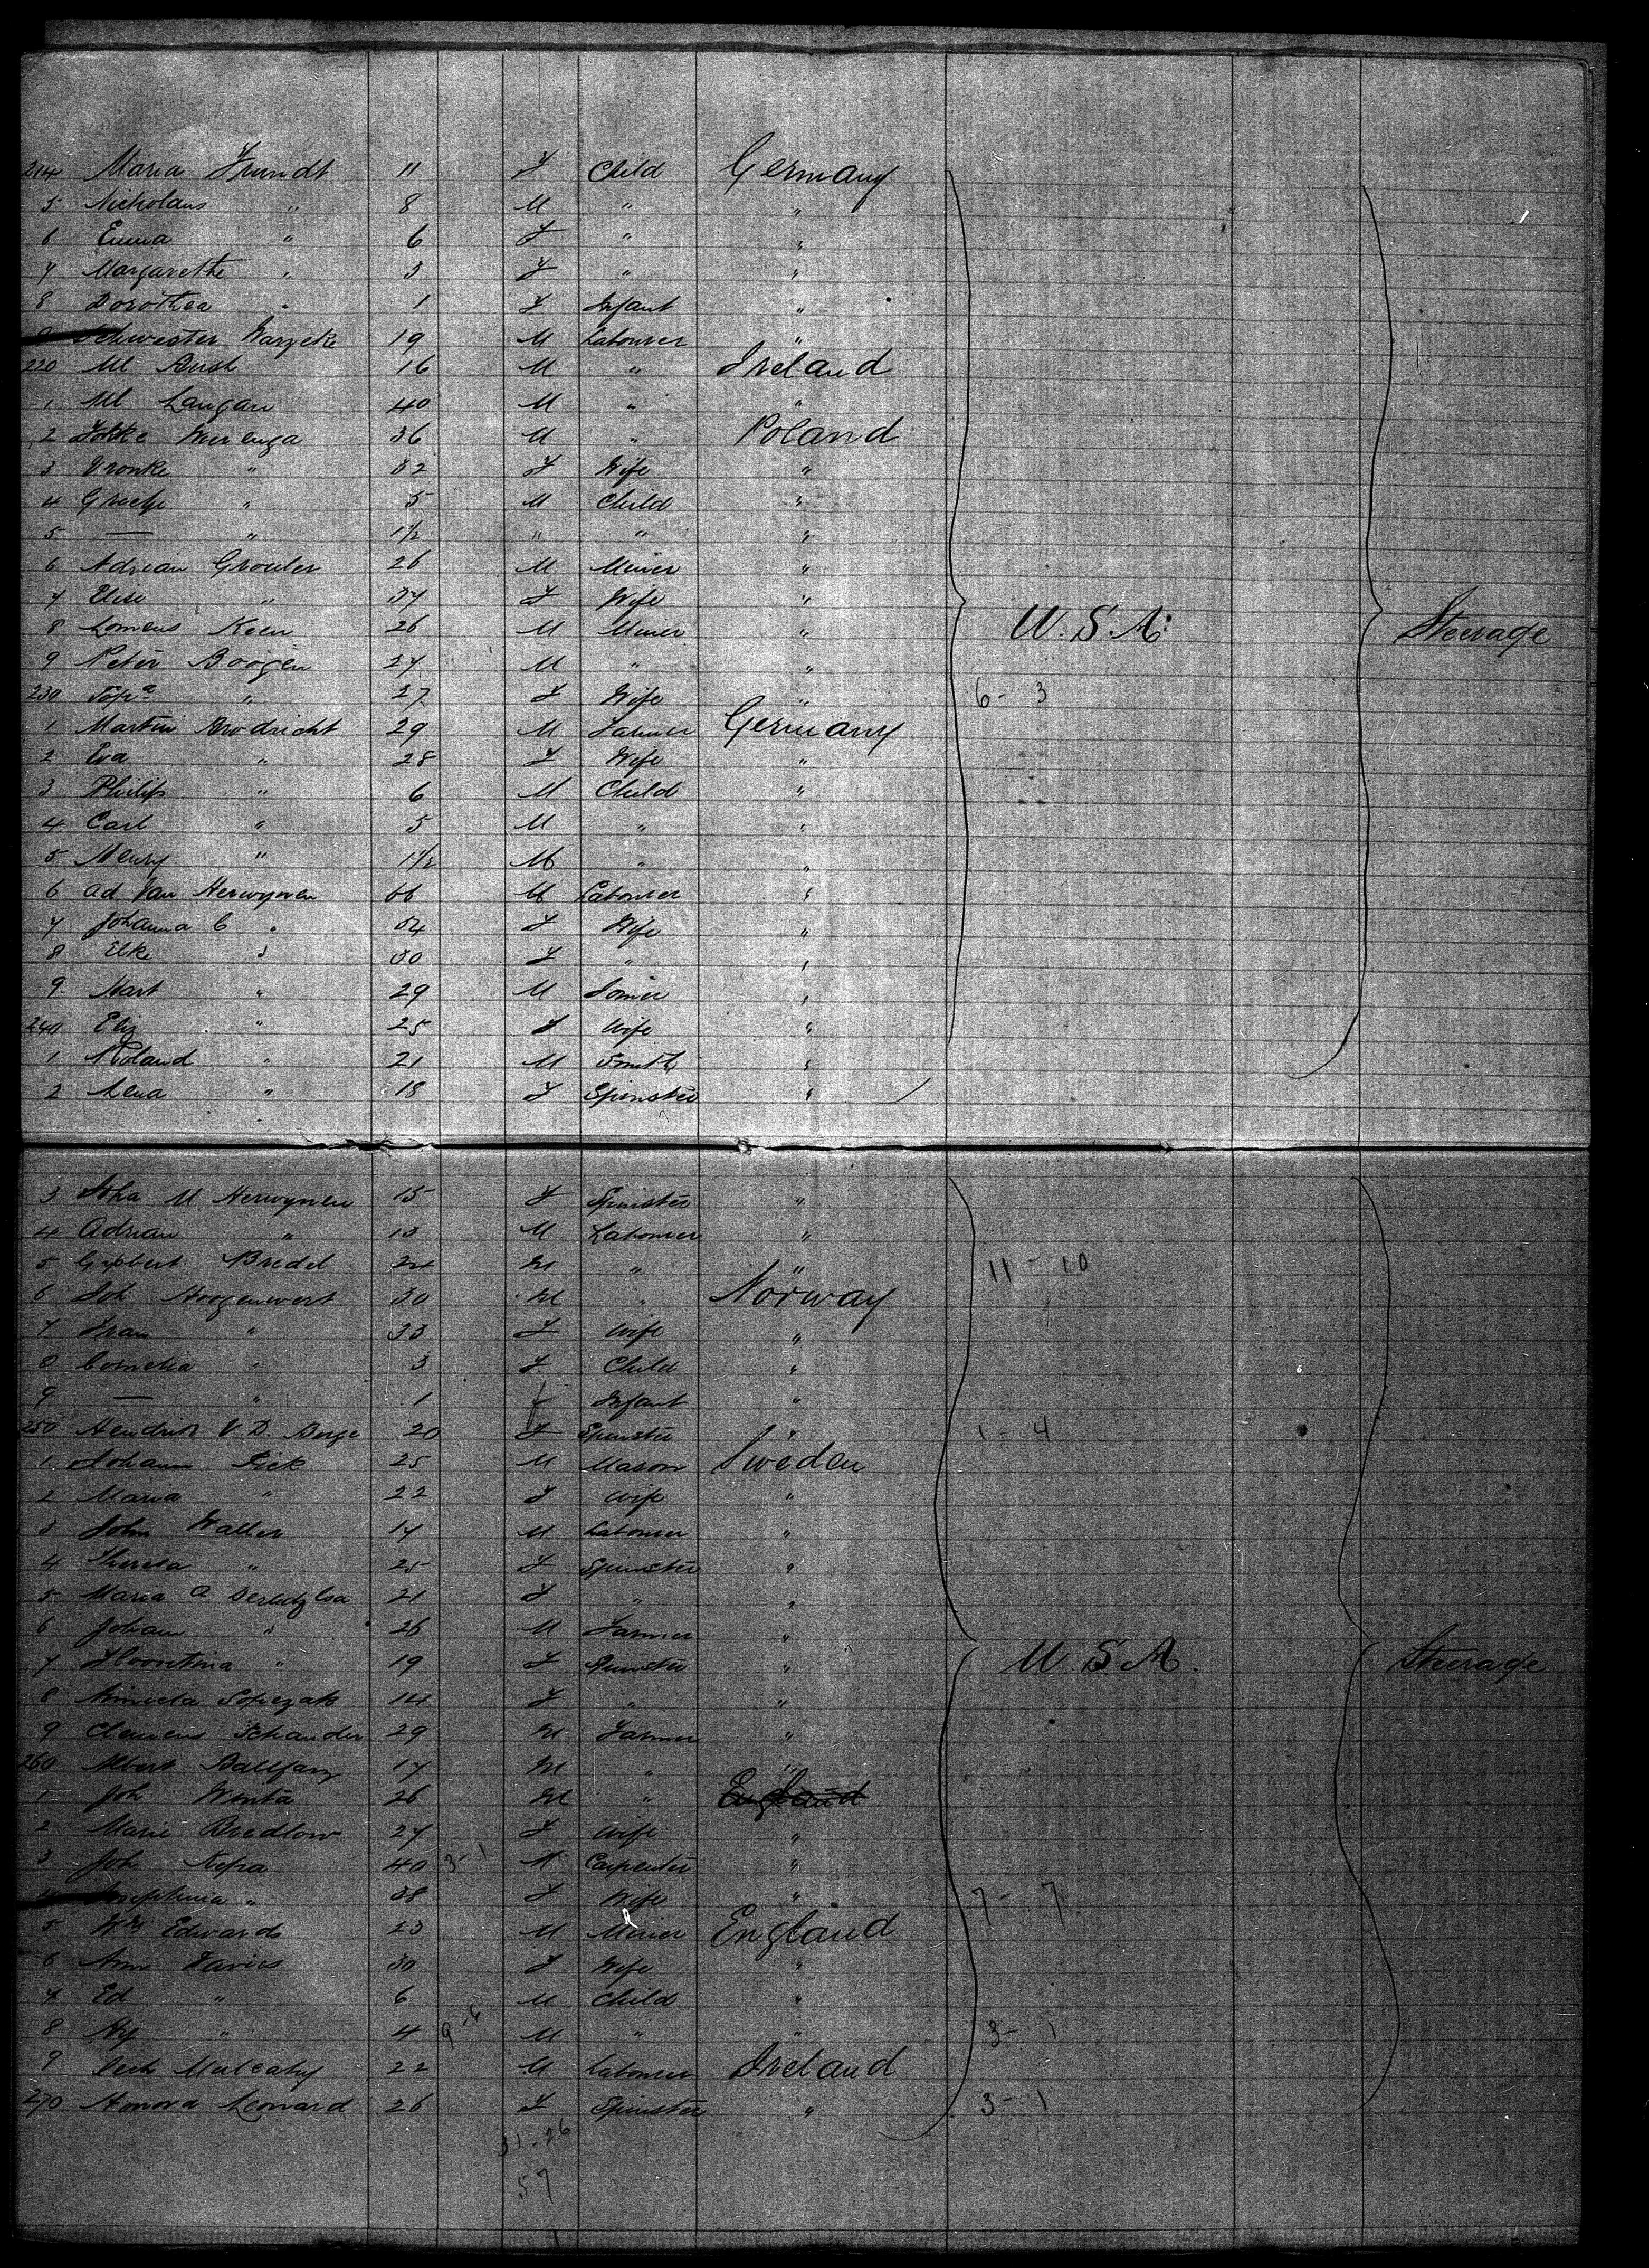 214 Maria Grundt 11 F Child Germany
5 Nicholaus " 8 M " "
6 Emma " 6 F " "
7 Margarethe " 3 F " "
8 Dorothea " 1 F Infant "
Schwester 19 M Labourer "
220 Ml Rush 16 M " Ireland
1 Ml Langan 40 M " "
2 Wierenga 36 M " Poland
3 Vronke " 32 F Wife "
4 " 5 M Child "
5 — " 1½ " " "
6 Adrian Grouler 26 M Miner "
7 Elise " 37 F Wife "
8 Koen 26 M Miner "
9 Peter Boogen 27 M " "
230 " 27 F Wife "
6 - 3
1 Martin Brodricht 29 M Farmer Germany
2 Eva " 28 F Wife "
3 Philip " 6 M Child "
4 Carl " 5 M " "
5 Henry " 1½ M " "
6 Ad Van Herwynen 66 M Labourer "
7 Johanna C " 54 F Wife "
8 Elke " 30 F " "
9 Mart " 29 M "
240 Eliz " 25 F Wife "
1 Roland " 21 M Smith "
2 Lena " 18 F Spinster "
U.S.A. Steerage
3 Joha M Herwynen 15 F Spinster "
4 Adrian " 13 M Labourer "
5 Gysbert Bredel 24 M " "
11 - 10
6 Joh Hoogenwert 30 M " Norway
7 " 33 F Wife "
8 Cornelia " 3 F Child "
9 — " 1 f Infant "
250 Hendrik V. D. Berge 20 F Spinster "
1 - 4
1 Johann 25 M Mason Sweden
2 Maria " 22 F Wife "
3 John Waller 17 M Labourer "
4 " 25 F Spinster "
5 Maria A 21 F " "
6 Johann " 26 M Farmer "
7 " 19 F Spinster "
8 14 F " "
9 Clemens Schander 29 M Farmer "
260 Albert Ballfanz 17 M " "
1 Joh Wonta 26 M " England
2 Marie Bredlow 27 F Wife "
3 Joh Nefra 40 3-1 M Carpenter "
4 Josephina " 38 F Wife "
7 - 7
5 Wm Edwards 23 M Miner England
6 Ann Davies 30 F Wife "
7 Ed " 6 M Child "
8 Hy " 4 9-6 M " "
3 - 1
9 Mulcahy 22 M Labourer Ireland
270 Honora Leonard 26 F Spinster "
3 - 1
U.S.A. Steerage
31-26
57